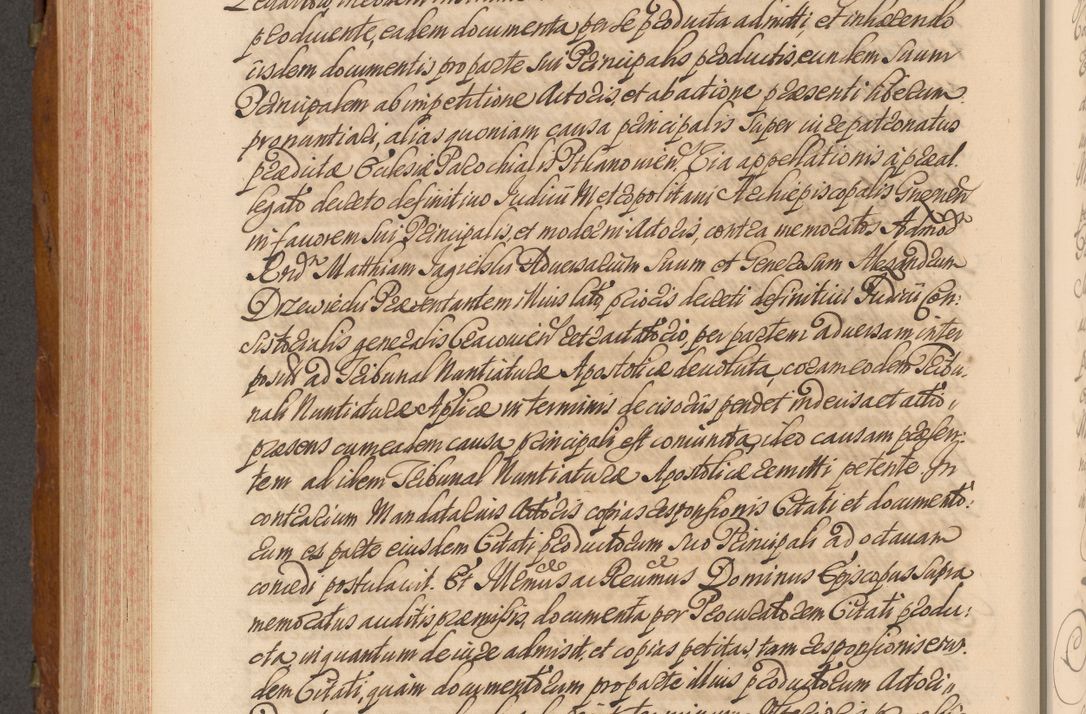 producente, eadem documenta per se producta admitti, et inhaerendo
iisdem documentis pro parte sui Principalis productis, eundem Suum
Principalem ab impetitione Actoris, et ab actione praesenti liberum
pronuntiari, alias quoniam causa principalis super iure patronatus
praedictae Ecclesiae Parochialis Pthanovien. Via appellationis à praeal.
legato decreto definitivo Judicii Metropolitani Archiepiscopalis Gnesnen
in favorem sui Principalis, et moderni Actoris, contra memoratos Admod
Rndm Matthiam Jagielski Adversarium Suum et Generosum Alexandrum
Drzewiecki Praesentantem illius lato, prioris decreti definitivi Judicii Con:
sistorialis generalis Cracovien retractatorio, per partem adversam inter
posita ad Tribunal Nuntiaturae Apostolicae devoluta, coram eodem Tribu:
nali Nuntiaturae Aplicae in terminis decisoriis pendet indecisa et actio,
praesens cum eadem causa principali est coniuncta, ideo causam praesen:
tem ad idem Tribunal Nuntiaturae Apostolicae remitti petente. In
contrarium Mandatarius Actoris copias responsionis Citati et documento:
rum ex parte eiusdem Citati productorum suo Principali ad octavam
concedi postulavit. Et Illmus ac Reumus Dominus Episcopus Supra
memoratus auditis praemissis, documenta per Procuratorem Citati produ:
cta in quantum de iure admisit, et copias petitas, tam responsionis eius:
dem Citati, quam documentorum pro parte illius productorum Actori,